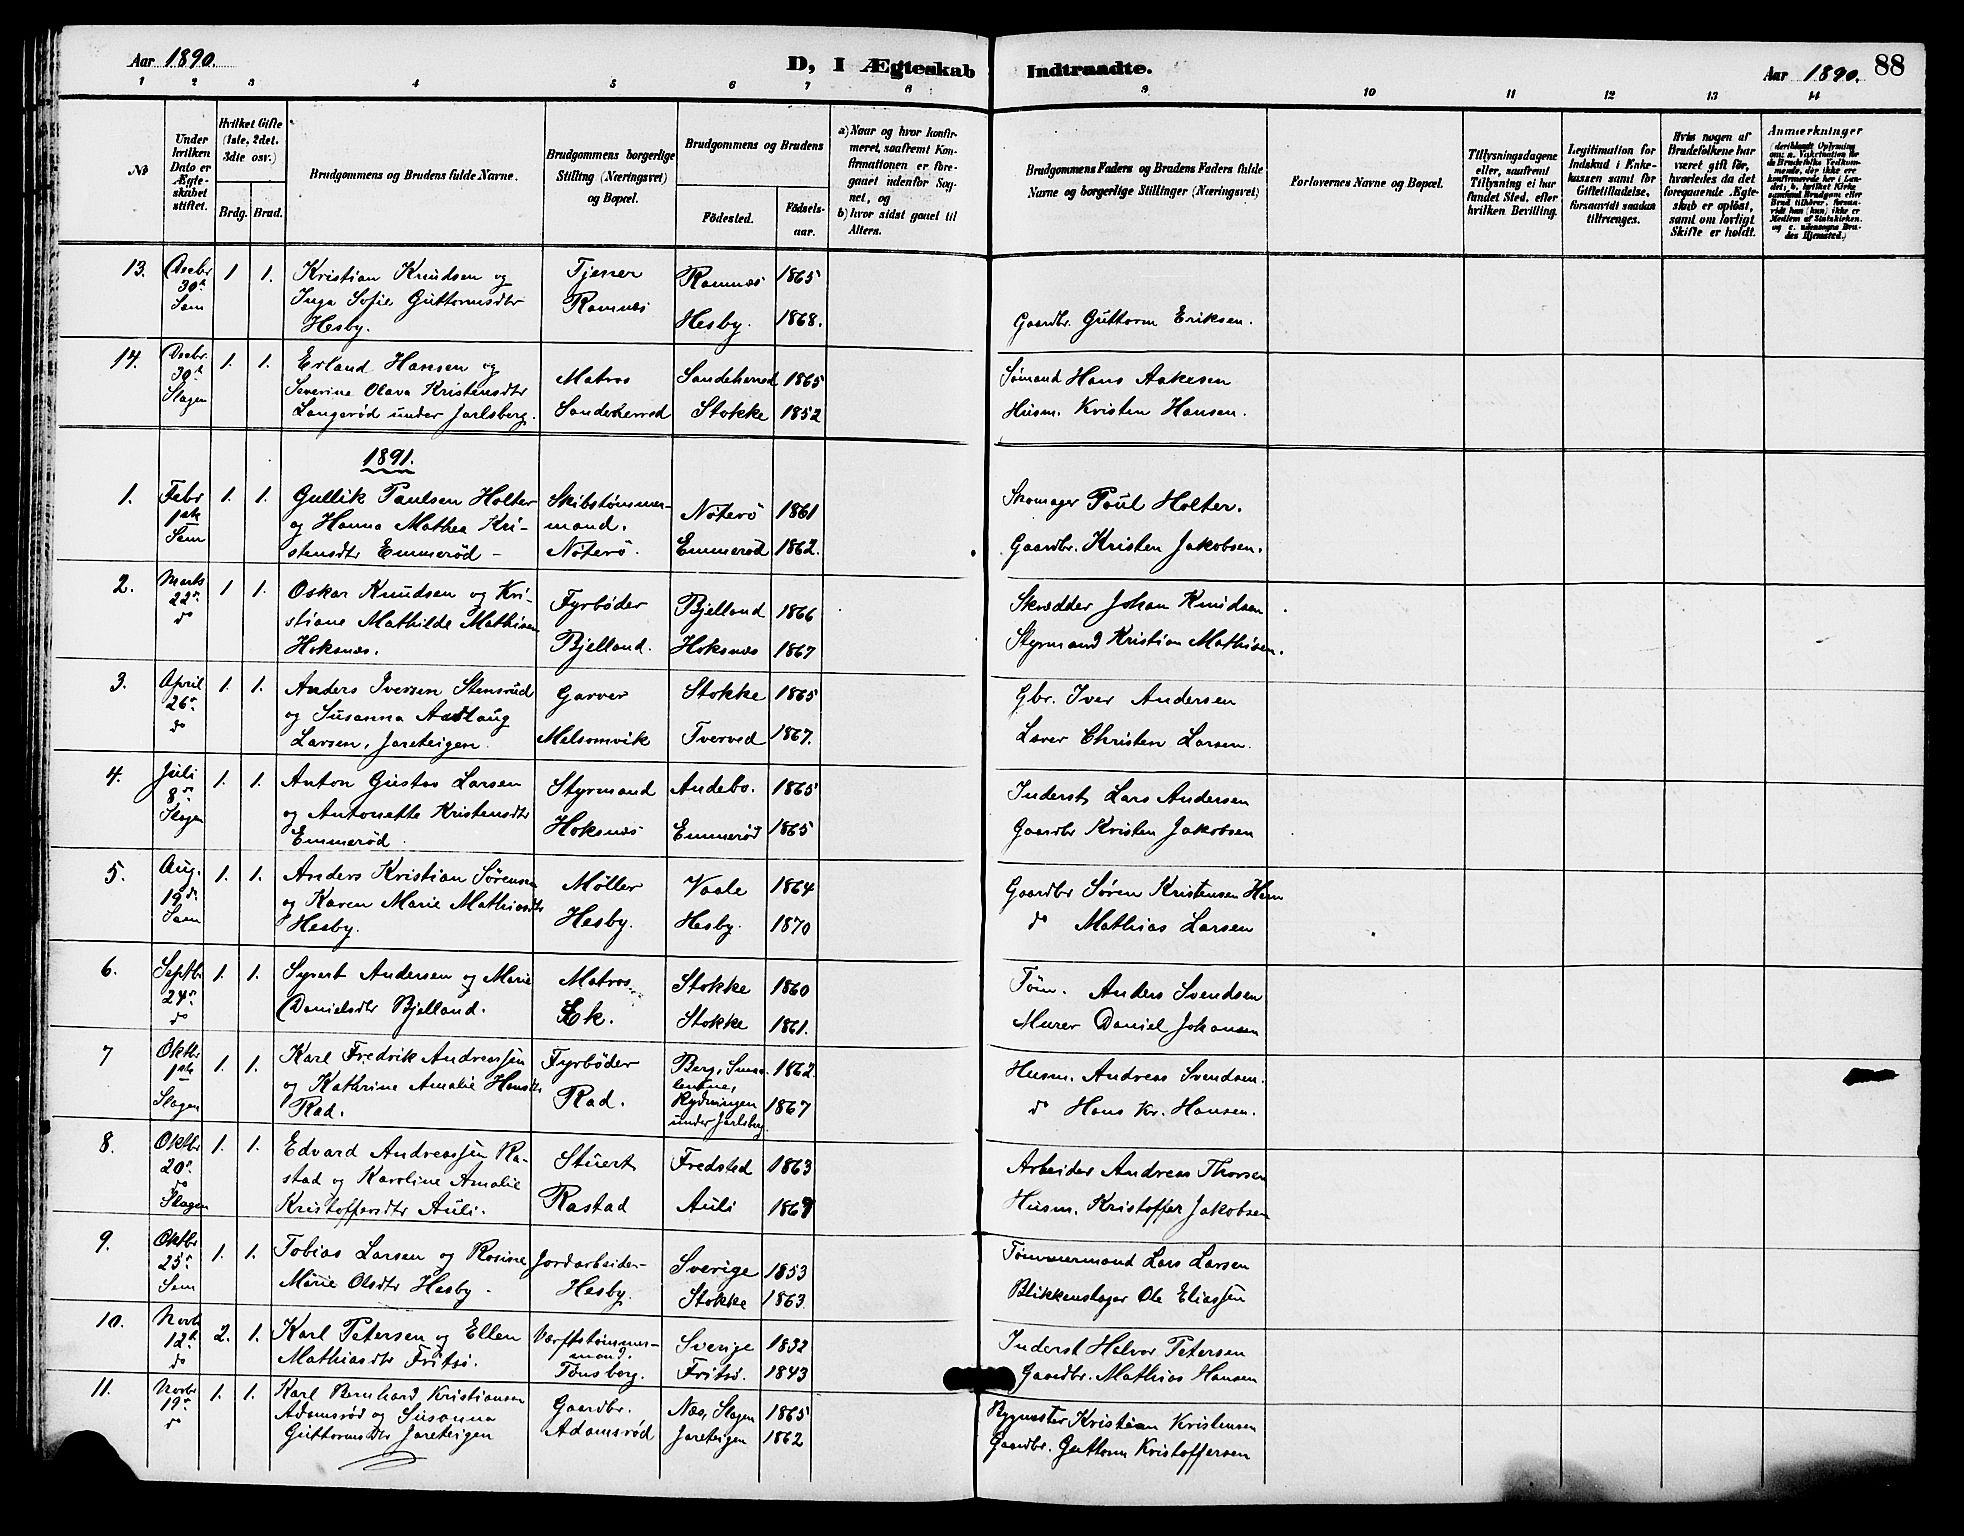 Aar 1890.
D, I Ægteskab Indtraadte.
Aar 1890.
88
1 2 3 4 5 6 7 8 9 10 11 12 13 14
No
Under hvilken Dato er Ægteskabet stiftet.
Hvilket Gifte (1ste, 2det. 3die osv.)
Brdg. Brud.
Brudgommens og Brudens fulde Navne.
Brudgommens borgerlige Stilling (Næringsvei) og Bopæl.
Brudgommens og Brudens
Fødested. Fødsels-aar.
a) Naar og hvor konfirmeret, saafremt Konfirmationen er foregaaet udenfor Sognet, og
b) hvor sidst gaaet til Alters.
Brudgommens Faders og Brudens Faders fulde Navne og borgerlige Stillinger (Næringsvei)
Forlovernes Navne og Bopæl.
Tillysningsdagene eller, saafremt Tillysning ei har fundet Sted, efter hvilken Bevilling.
Legitimation for Indskud i Enkekassen samt for Giftetilladelse, forsaavidt saadan tiltrænges.
Hvis nogen af Brudefolkene har været gift før, hvorledes da det foregaaende Ægteskab er opløst, samt om lovligt Skifte er holdt.
Anmærkninger
13. Decbr 1 1. Kristian Knudsen og Tjener Ramnæs 1865
30te Inga Sofie Guttormsdtr Ramnæs
Sem Hesby. Hesby. 1868. Gaardbr. Guttorm Eriksen.
14. Decbr. 1. 1. Erland Hansen og
30te Severine Olava Kristensdtr Matros Sandeherred 1865 Sømand Hans Aakesen
Slagen Langerød under Jarlsberg. Sandeherred Stokke 1852 Husm. Kristen Hansen.
1891.
1. Febr 1. 1. Gullik Paulsen Holter Skibstømmer- Skomager Poul Holter.
1ste og Hanna Mathea Kri- mand. Nøterø 1861
Sem stensdtr Emmerød - Nøterø. Emmerød 1862. Gaardbr. Kristen Jakobsen.
2. Marts 1 1. Oskar Knudsen og Kri-
22n stiane Mathilde Mathisen Fyrbøder Bjelland 1866 Skrædder Johan Knudsen
do Hoksnæs. Bjelland. Hoksnæs 1867 Styrmand Kristian Mathisen.
3. April 1. 1. Anders Iversen Stensrud Garver Stokke 1865 Gbr. Iver Andersen
26n og Susanna Aaslaug
do Larsen, Jareteigen. Melsomvik Tverved 1867. Larer Christen Larsen.
4. Juli 1. 1. Anton Gustav Larsen Styrmand Andebo. 1865 Inderst Lars Andersen
8n og Antonette Kristensdtr
Slagen Emmerød. Hoksnæs Emmerød 1865 Gaardbr Kristen Jakobsen
5. Aug. 1. 1. Anders Kristian Sørensen Møller Vaale 1864 Gaardbr Søren Kristensen Hem
19de og Karen Marie Mathiasdtr
Sem Hesby. Hesby. Hesby. 1870 do Mathias Larsen
6. Septbr 1. 1. Syvert Andersen og Marie Matros Stokke 1860 Tøm. Anders Svendsen
24n Danielsdtr Bjelland.
do Ek. Stokke 1861. Murer Daniel Johansen
7 Oktbr 1. 1. Karl Fredrik Andreassen Fyrbøder Berg, Smaa- 1862. Husm. Andreas Svendsen.
1ste og Kathrine Amalie Hansdtr lenene,
Slagen Rad. Rad. Rydningen under Jarlsberg. 1867 do Hans Kr. Hansen.
8. Oktbr 1. 1. Edvard Andreassen Ra-
20n stad og Karoline Amalie Stuert Fredsted 1863 Arbeider Andreas Thorsen
do Slagen Kristoffersdtr Auli. Rastad Auli 1869 Husm. Kristoffer Jakobsen
9. Oktbr 1. 1. Tobias Larsen og Rosine Jordarbeider Sverige 1853 Tømmermand Lars Larsen
25n Marie Olsdtr Hesby.
Sem Hesby. Stokke 1863. Blikkenslager Ole Eliassen
10. Novb 2. 1. Karl Petersen og Ellen Værftstømmer- Sverige 1832 Inderst Halvor Petersen
12te Mathiasdtr Fritsø. mand.
do Tønsberg. Fritsø. 1843 Gaardbr. Mathias Hansen
11. Novbr 1. 1. Karl Bernhard Kristiansen Gaardbr. Næs, Slagen 1865 Bygmester Kristian Kristensen
19n Adamsrød og Susanna
do Guttormsdtr Jareteigen Adamsrød Jareteigen 1862 Gaardbr. Guttorm Kristoffersen